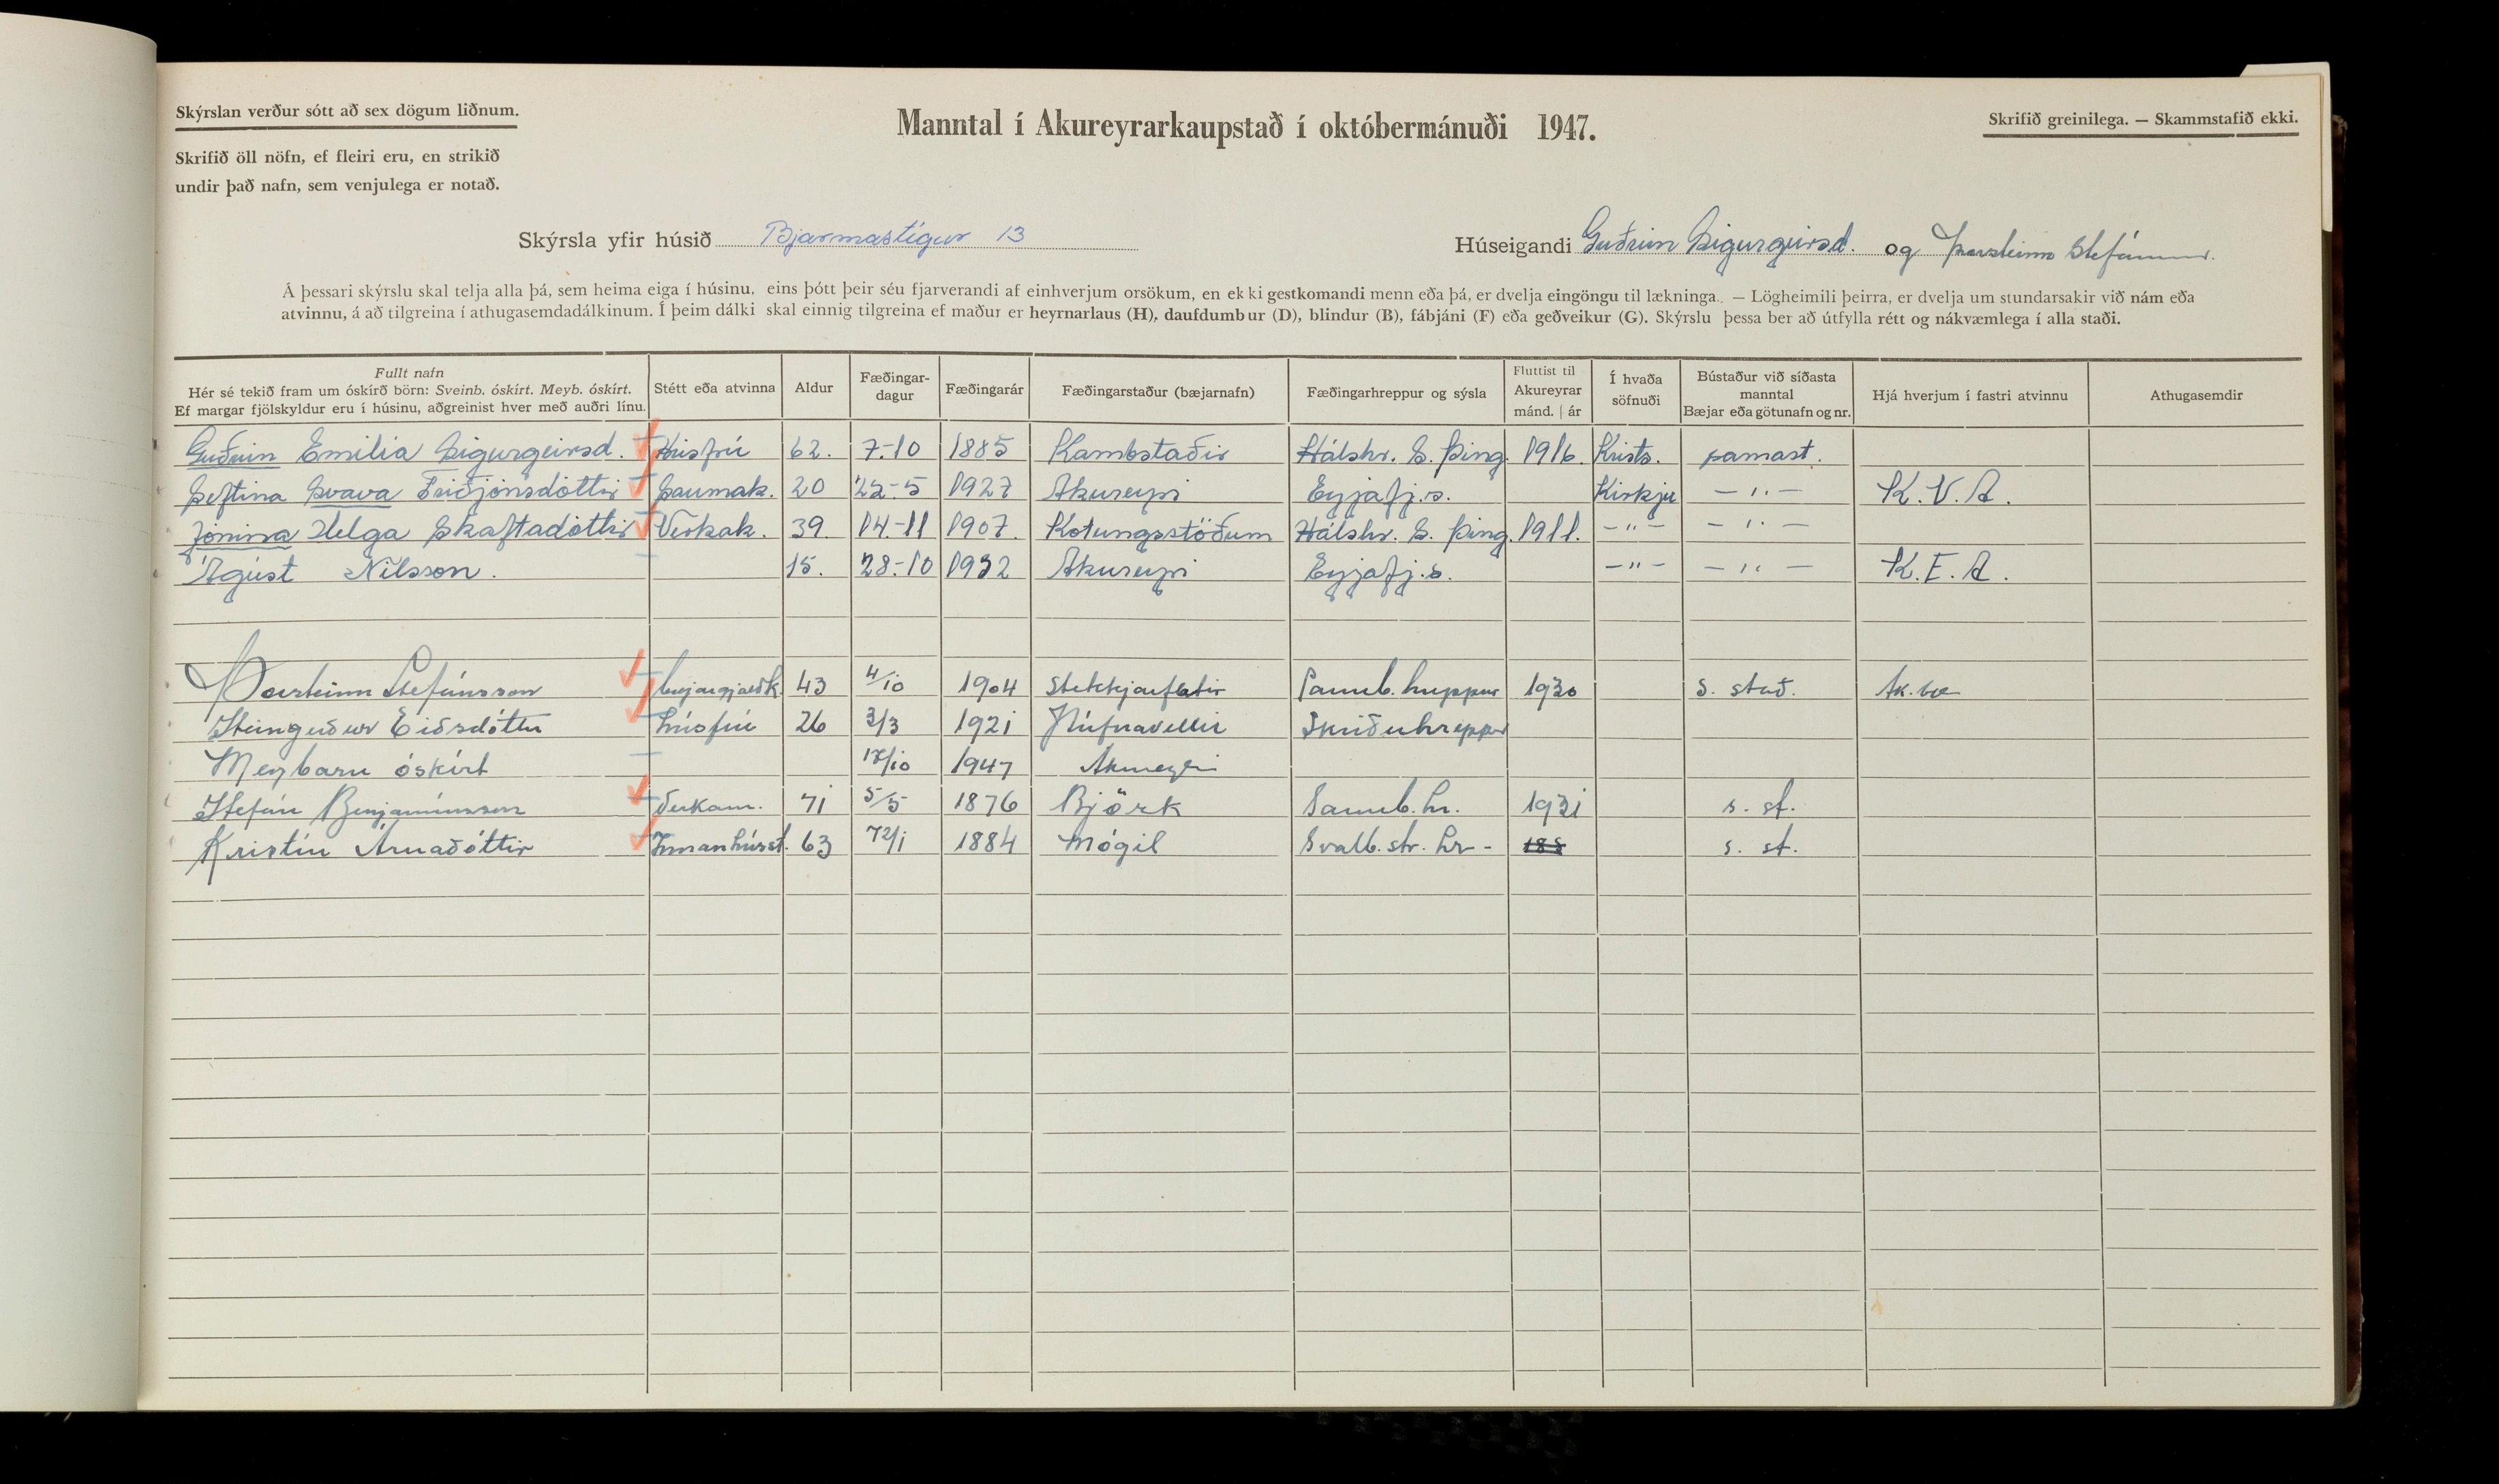 Skýrslan verður sótt að sex dögum liðnum.
Manntal í Akureyrarkaupstað í októbermánuði 1947.
Skrifið greinilega. — Skammstafið ekki.
Skrifið öll nöfn, ef fleiri eru, en strikið
undir það nafn, sem venjulega er notað.
Skýrsla yfir húsið Bjarmastígur 13
Húseigandi Guðrún Sigurgeirsd. og Þorsteinn Stefánsson.
Á þessari skýrslu skal telja alla þá, sem heima eiga í húsinu, eins þótt þeir séu fjarverandi af einhverjum orsökum, en ekki gestkomandi menn eða þá, er dvelja eingöngu til lækninga. — Lögheimili þeirra, er dvelja um stundarsakir við nám eða
atvinnu, á að tilgreina í athugasemdadálkinum. Í þeim dálki skal einnig tilgreina ef maður er heyrnarlaus (H), daufdumbur (D), blindur (B), fábjáni (F) eða geðveikur (G). Skýrslu þessa ber að útfylla rétt og nákvæmlega í alla staði.
Fullt nafn
Hér sé tekið fram um óskírð börn: Sveinb. óskírt. Meyb. óskírt.
Ef margar fjölskyldur eru í húsinu, aðgreinist hver með auðri línu.
Stétt eða atvinna
Aldur
Fæðingar-
dagur
Fæðingarár
Fæðingarstaður (bæjarnafn)
Fæðingarhreppur og sýsla
Fluttist til
Akureyrar
mánd. | ár
Í hvaða
söfnuði
Bústaður við síðasta
manntal
Bæjar eða götunafn og nr.
Hjá hverjum í fastri atvinnu
Athugasemdir
Guðrún Emilía Sigurgeirsd. Húsfrú 62. 7.-10 1885 Kambstaðir Hálshr. S. Þing. 1916. Krists. samast.
Sestína Svava Friðjónsdóttir Saumak. 20 22-5 1927 Akureyri Eyjafj.s. Kirkju — " — K.V.A.
Jónína Helga Skaftadóttir Verkak. 39. 14.-11 1907. Kotungsstöðum Hálshr. S. Þing. 1911. — " — — " —
Ágúst Nilsson. 15. 28.-10 1932 Akureyri Eyjafj.s. — " — — " — K.E.A.
Þorsteinn Stefánsson bæjargjaldk. 43 4/10 1904 Stekkjarflatir Saurb.hreppur 1930 s. stað. Ak.bæ
Steingerður Eiðsdóttir húsfrú 26 3/3 1921 Þúfnavellir Skriðuhreppur
Meybarn óskírt 17/10 1947 Akureyri
Stefán Benjamínsson Verkam. 71 5/5 1876 Björk Saurb.hr. 1931 s. st.
Kristín Árnadóttir 63 1884 Mógil Svalb.str.hr- s. st.